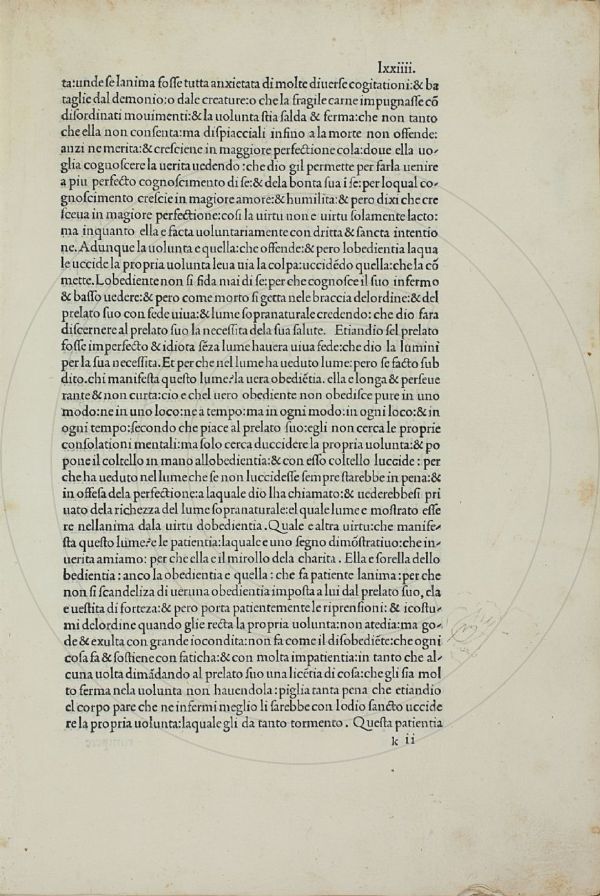 lxxiiii.
ta:unde se lanima fosse tutta anxietata di molte diuerse cogitationi:& ba
taglie dal demonio:o dale creature:o che la fragile carne impugnasse cō
disordinati mouimenti:& la uolunta stia salda & ferma:che non tanto
che ella non consenta:ma dispiacciali infino a la morte non offende:
anzi ne merita:& cresciene in maggiore perfectione cola:doue ella uo-
glia cognoscere la uerita uedendo :che dio gil permette per farla uenire
a piu perfecto cognoscimento di se:& dela bonta sua ī se:per loqual co-
gnoscimento crescie in magiore amore:& humilita:& pero dixi che cre
sceua in magiore perfectione:cosi la uirtu non e uirtu solamente lacto:
ma inquanto ella e facta uoluntariamente con dritta & sancta intentio
ne.Adunque la uolunta e quella:che offende:& pero lobedientia laqua
le uccide la propria uolunta leua uia la colpa:uccidēdo quella:che la cō
mette.Lobediente non si fida mai di se:per che cognosce il suo infermo
& basso uedere:& pero come morto si getta nele braccia delordine:& del
prelato suo con fede uiua:& lume sopranaturale credendo: che dio fara
discernere al prelato suo la necessita dela sua salute. Etiandio sel prelato
fosse imperfecto & idiota sēza lume hauera uiua fede:che dio la lumini
per la sua necessita.Et per che nel lume ha ueduto lume:pero se facto sub
dito.chi manifesta questo lume?la uera obediētia. ella e longa & perseue
rante & non curta:cio e chel uero obediente non obedisce pure in uno
modo:ne in uno loco:ne a tempo:ma in ogni modo:in ogni loco:& in
ogni tempo:secondo che piace al prelato suo:egli non cerca le proprie
consolationi mentali:ma solo cerca duccidere la propria uolunta:& po
pone il coltello in mano allobedientia:& con esso coltello luccide : per
che ha ueduto nel lume che se non luccidesse sempre starebbe in pena:&
in offesa dela perfectione:a laquale dio lha chiamato:& uederebbesi pri
uato dela richezza del lume sopranaturale:el quale lume e mostrato esse
re nellanima dala uirtu dobedientia .Quale e altra uirtu:che manife-
sta questo lume?e le patientia:laquale e uno segno dimōstratiuo:che in-
uerita amiamo: per che ella e il mirollo dela charita . Ella e sorella dello
bedientia : anco la obedientia e quella : che fa patiente lanima : per che
non si scandeliza di ueruna obedientia imposta a lui dal prelato suo, ela
e uestita di forteza:& pero porta patientemente le riprensioni: & icostu-
mi delordine quando glie recta la propria uolunta:non atedia:ma go-
de & exulta con grande iocondita:non fa come il disobediēte:che ogni
cosa fa & sostiene con faticha:& con molta impatientia:in tanto che al-
cuna uolta dimādando al prelato suo una licētia di cosa:che gli sia mol
to ferma nela uolunta non hauendola : piglia tanta pena che etiandio
el corpo pare che ne infermi meglio li sarebbe con lodio sancto uccide
re la propria uolunta:laquale gli da tanto tormento . Questa patientia
k ii